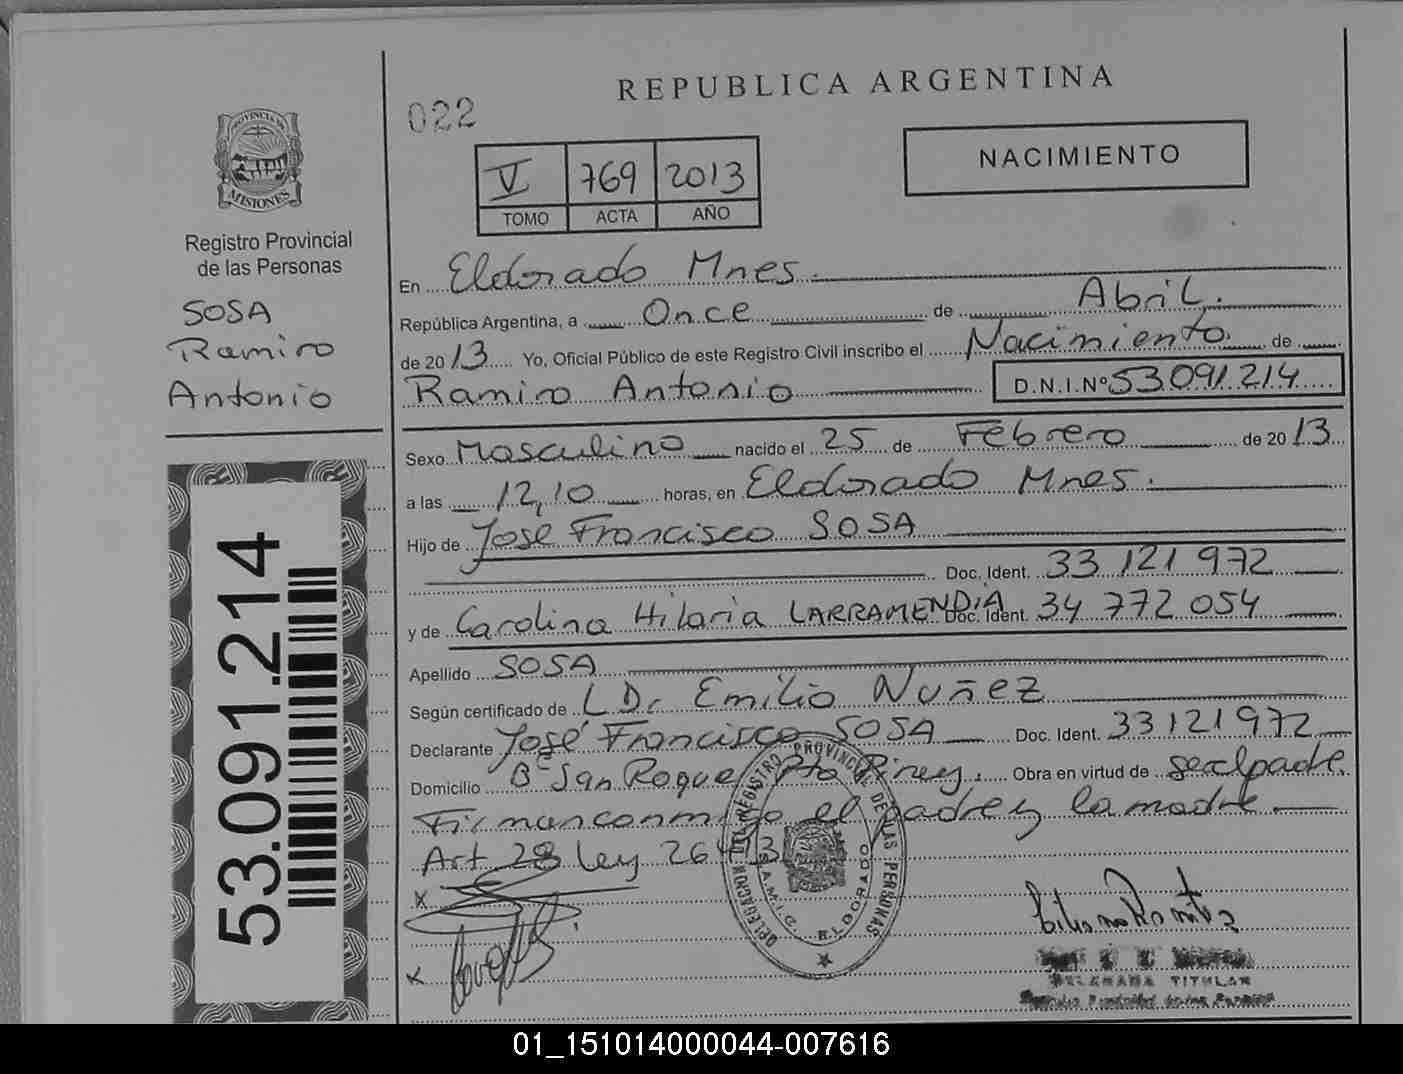 REPUBLICA ARGENTINA
022
PROVINCIA DE
MISIONES
Registro Provincial
de las Personas
SOSA
Ramiro
Antonio
V 769 2013
TOMO ACTA AÑO
NACIMIENTO
En Eldorado Mnes.
República Argentina, a Once de Abril.
de 2013 Yo, Oficial Público de este Registro Civil inscribo el Nacimiento de
Ramiro Antonio D.N.I.Nº 53.091.214
Sexo Masculino nacido el 25 de Febrero de 2013
a las 12,10 horas, en Eldorado Mnes.
Hijo de Jose Francisco SOSA
Doc. Ident. 33 121 972
y de Carolina Hilaria LARRAMENDIA Doc. Ident. 34 772 054
Apellido SOSA
Según certificado de LDr Emilio Nuñez
Declarante José Francisco SOSA Doc. Ident. 33121972
Domicilio Bº San Roque Pto Piray. Obra en virtud de ser el padre
Firman conmigo el padre y la madre
Art 28 Ley 26413
DELEGACION DEL REGISTRO PROVINCIAL DE LAS PERSONAS
S.A.M.I.C. ELDORADO
DELEGADA TITULAR
53.091.214
01_151014000044-007616